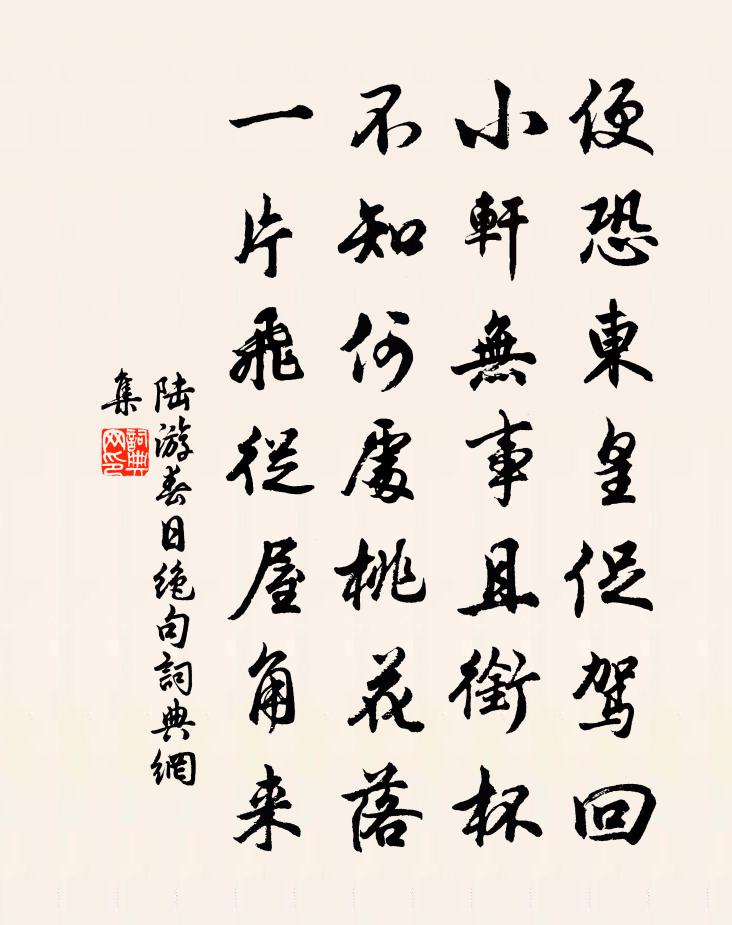 便恐東皇促駕回
小軒無事且銜杯
不知何處桃花落
一片飛從屋角来
陆游春日绝句詞典網
集
詞典
网印